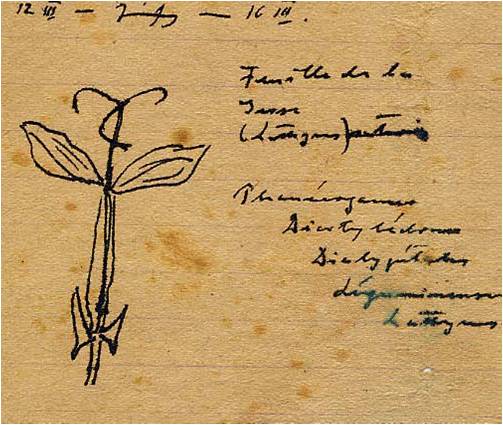 12 III — — 16 III.
Feuille de la
Jesse
(Lathyrus)
Phanérogames
Dicotylédones
Dialypétales
Légumineuses
Lathyrus